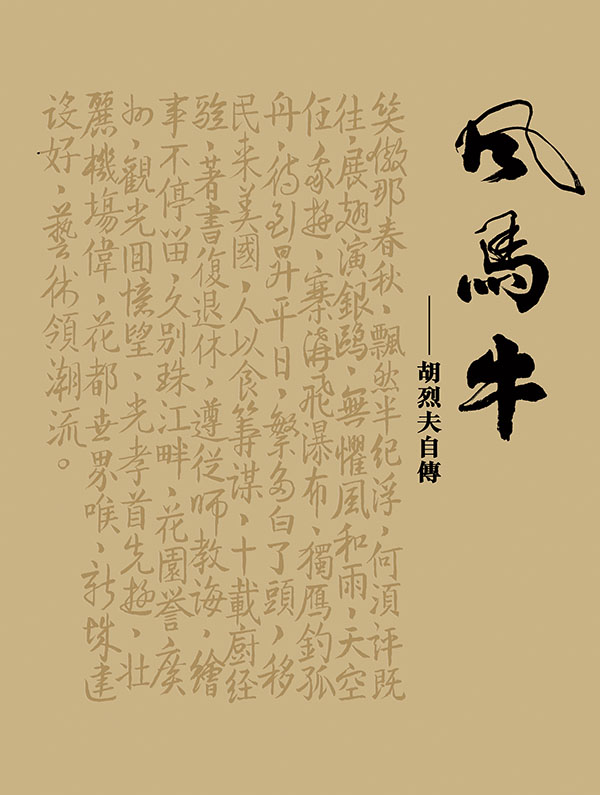 风馬牛
——胡烈夫自傳
笑傲那春秋，飄然半纪浮，何須評既
往，展翅演銀鷗，無懼風和雨，天空
任我遊，寨溝飛瀑布，獨雁釣孤
舟，待到昇平日，繁多白了頭，移
民来美國，人以食籌謀，十載廚经
验，著書復退休，遵從師教誨，繪
事不停留，久别珠江畔，花園誉廣
州，觀光囬憶望，光孝首先遊，壯
麗機塲偉，花都世界，新城建
設好，藝術領潮流。